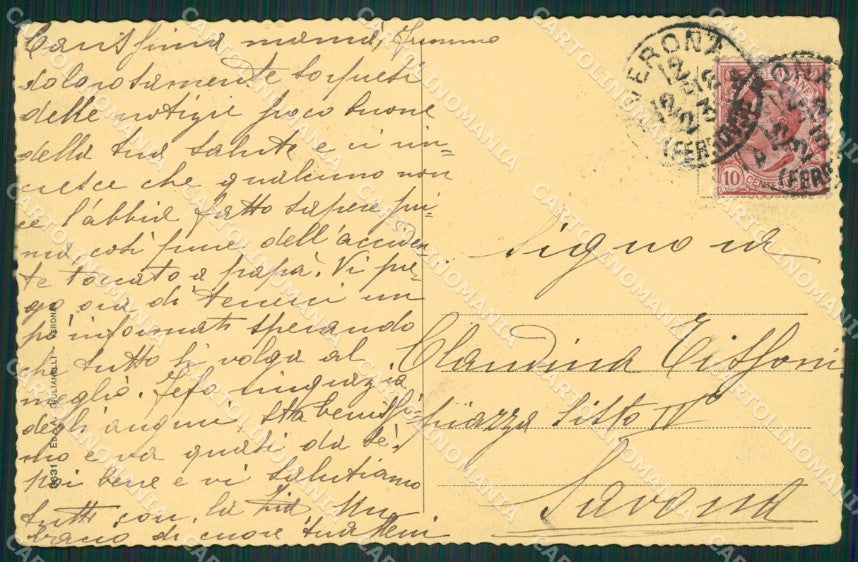 Carissima mamma, Fummo
dolorosamente sorpresi
delle notizie poco buone
della tua salute e ci in=
cresce che qualcuno non
ce l'abbia fatto sapere pri-
ma, così pure dell'acciden
te toccato a papà. Vi pre-
go ora di tenerci un
pò informati sperando
che tutto si volga al
meglio. Fefo ringrazia
degli auguri, sta beniss=
mo e va quasi da sè.
Noi bene e vi salutiamo
tutti con la zia. Un
bacio di cuore tua
VERONA
12
(FERROVIA)
10 CENT
Signora
Claudina
piazza Sisto IV°
Savona
6631 - Ed. A. GIULIANELLI - VERONA
CARTOLINOMANIA